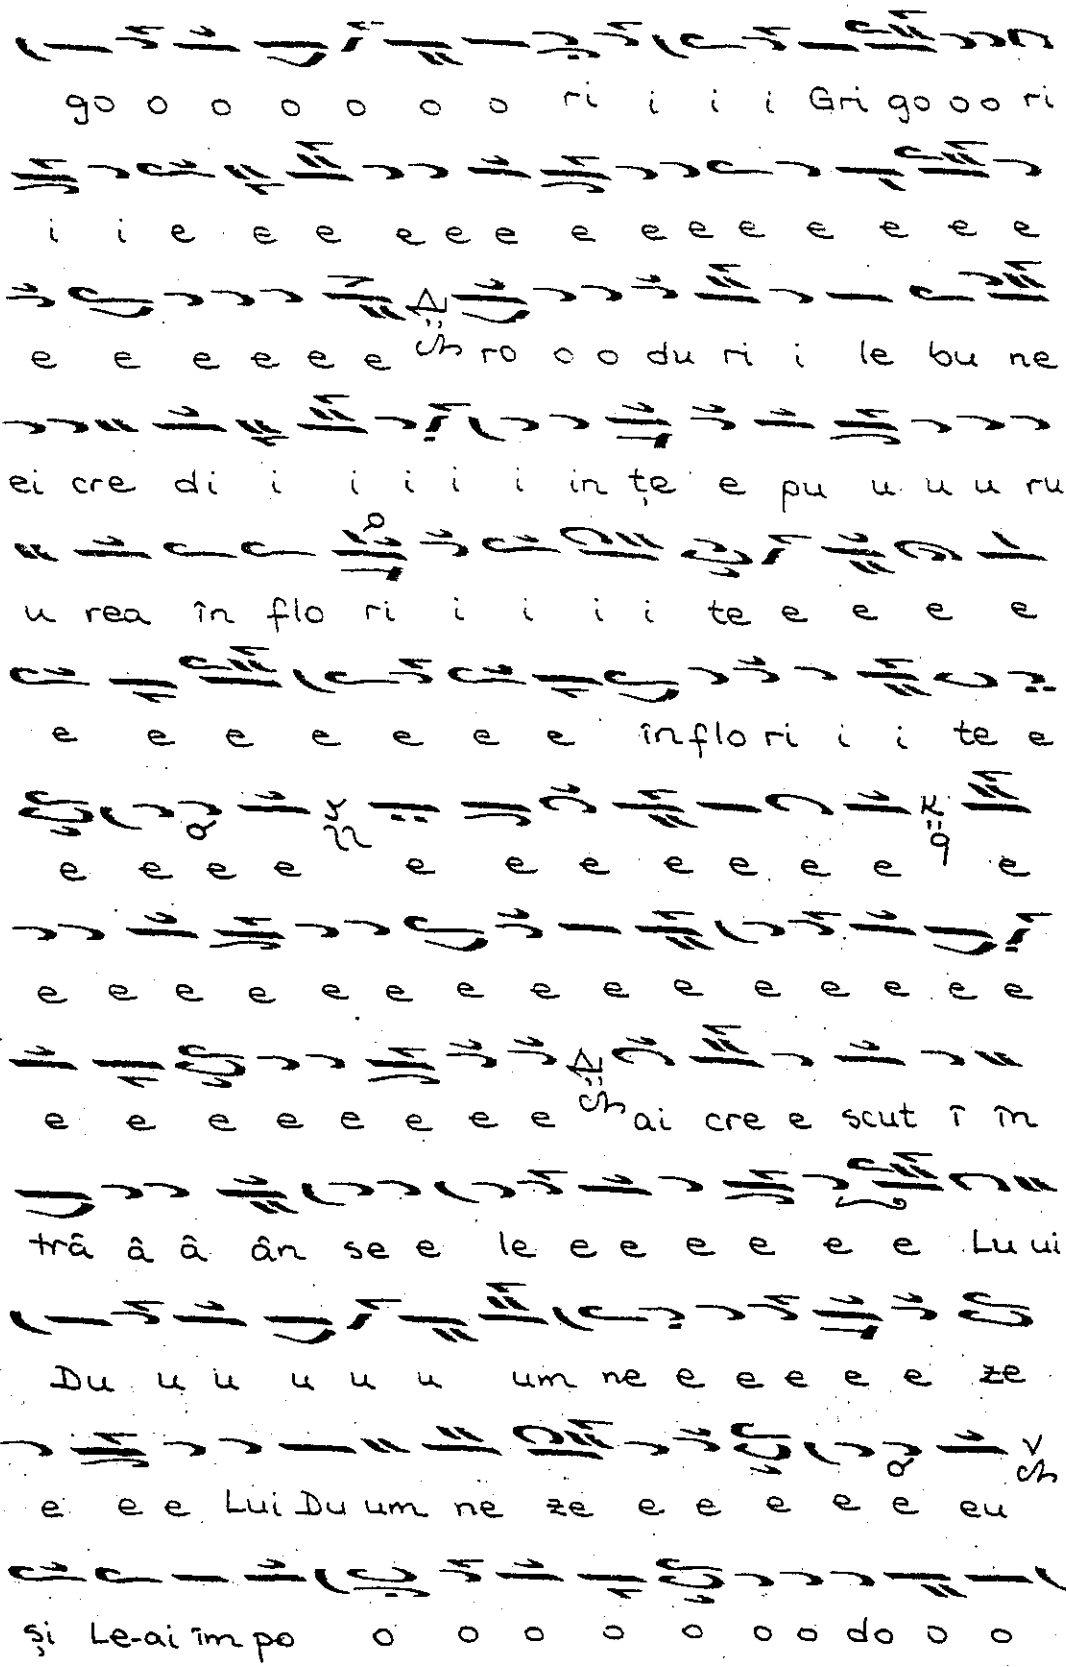 go o o o o o o ri i i i Gri go o o ri
i i e e e e e e e e e e e e e e
e e e e e e ro o o du ri i le bu ne
ei cre di i i i i i in țe e pu u u u ru
u rea în flo ri i i i i te e e e e
e e e e e e e e în flo ri i i te e
e e e e e e e e e e e e
e e e e e e e e e e e e e e e
e e e e e e e e ai cre e scut î în
trâ â â ân se e le e e e e e e Lu ui
Du u u u u u um ne e e e e e ze
e e e Lui Du um ne ze e e e e e eu
și Le-ai îm po o o o o o o o do o o